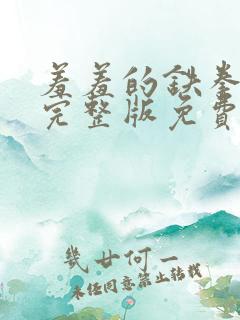 羞羞的鉄拳
完整版免費
幾廿何一
未经同意禁止转载